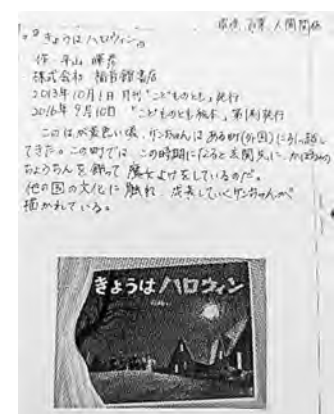 環境、言葉、人間関係
。『きょうはハロウィン』
作 平山 暉彦
株式会社 福音館書店
2013年10月1日 月刊「こどものとも」発行
2016年9月10日 「こどものとも絵本」第1刷発行
このはが黄色い頃、ケンちゃんはある町(外国)にひっ越し
てきた。この町では、この時期になると玄関先に、かぼちゃの
ちょうちんを飾って魔女よけをしているのだ。
他の国の文化に触れ、成長していくケンちゃんが
描かれている。
きょうはハロウィン